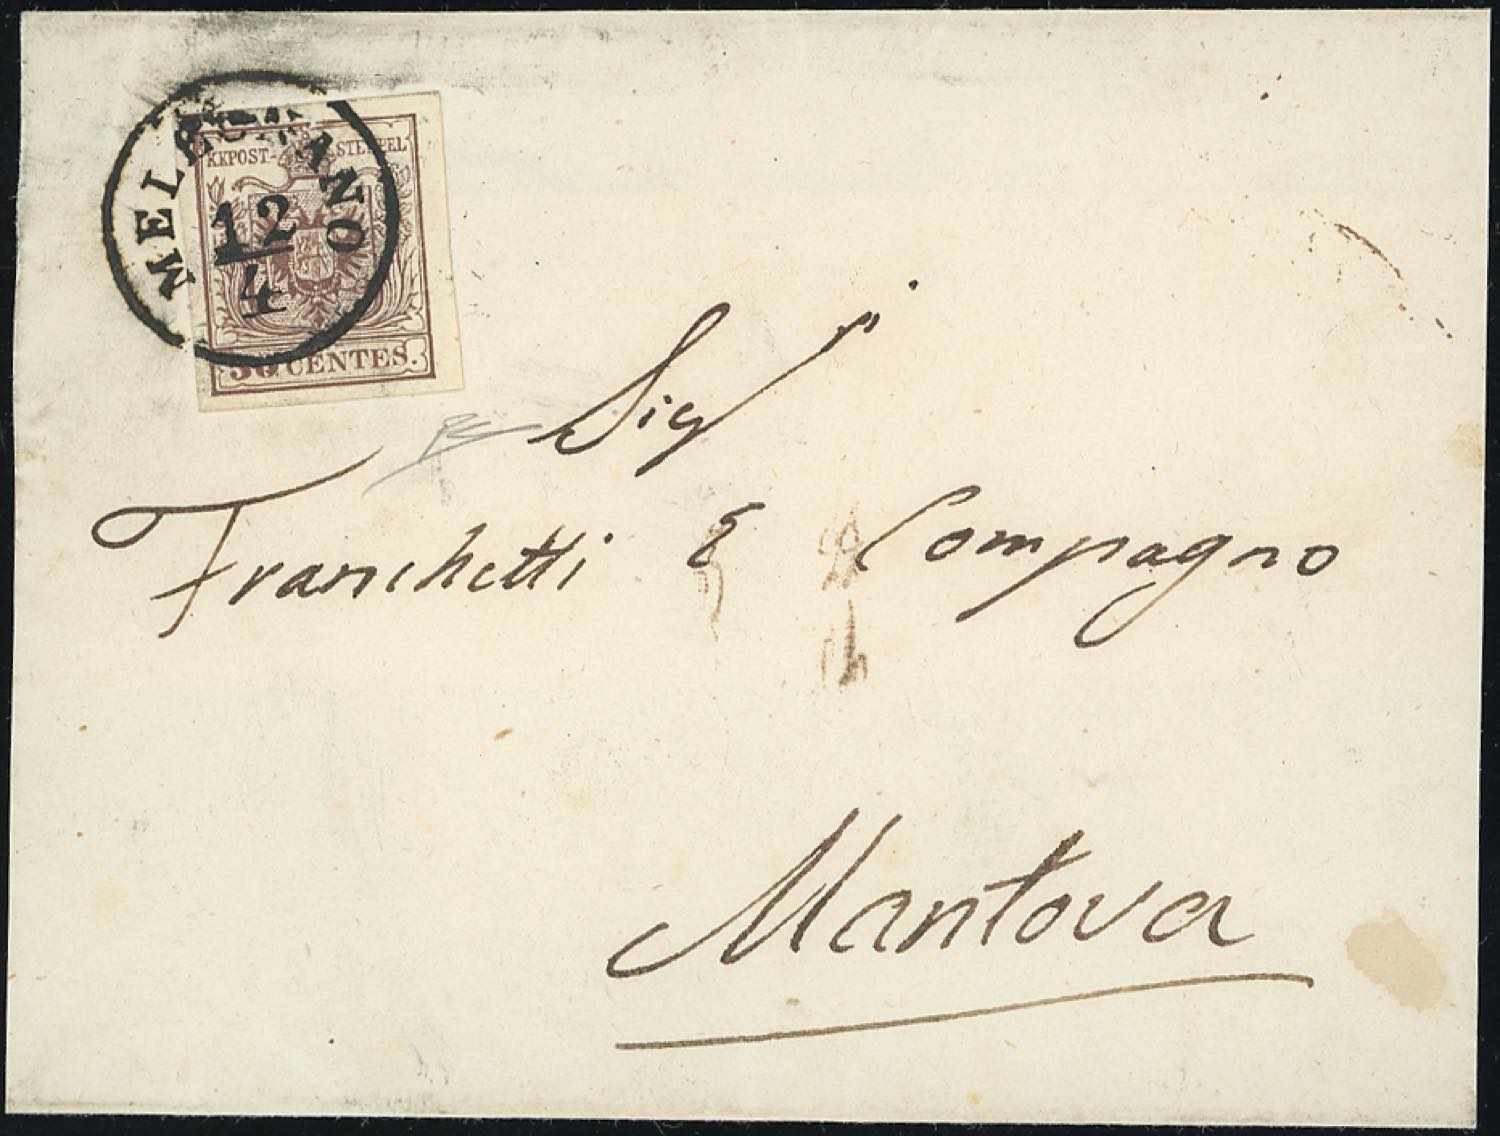 MELEGNANO
12
4
KKPOST-STEMPEL
30 CENTES.
Sigʳⁱ
Franchetti e Compagno
Mantova